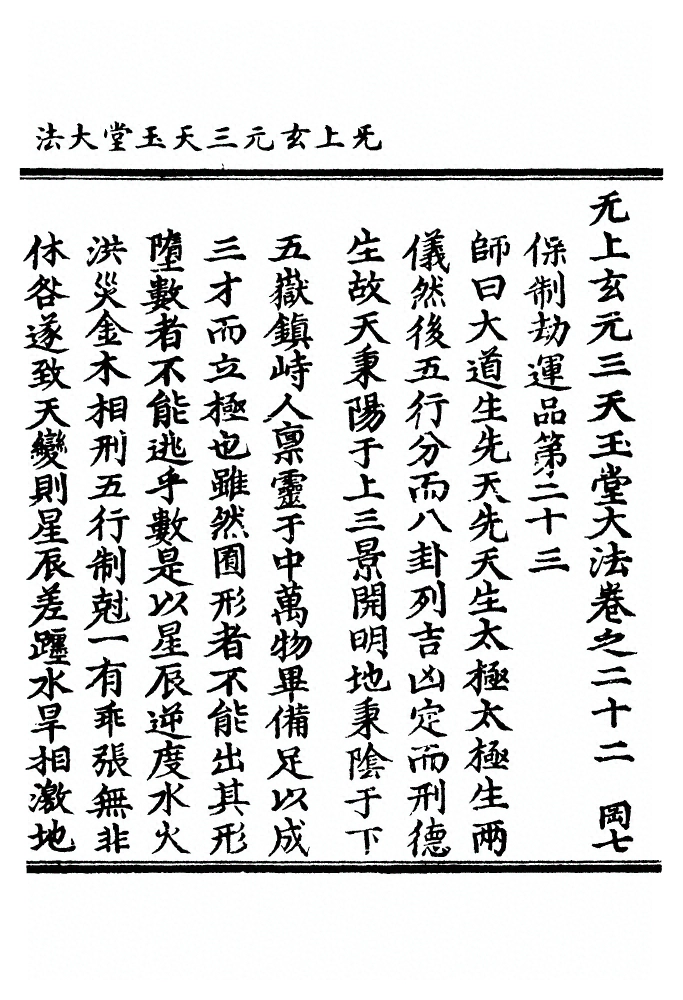 无上玄元三天玉堂大法
无上玄元三天玉堂大法卷之二十二 岡七
保制劫運品第二十三
師曰大道生先天先天生太極太極生兩
儀然後五行分而八卦列吉凶定而刑德
生故天秉陽于上三景開明地秉陰于下
五嶽鎮峙人禀靈于中萬物畢備足以成
三才而立極也雖然囿形者不能出其形
墮數者不能逃乎數是以星辰逆度水火
洪災金木相刑五行制尅一有乖張無非
休咎遂致天變則星辰差躔水旱相激地